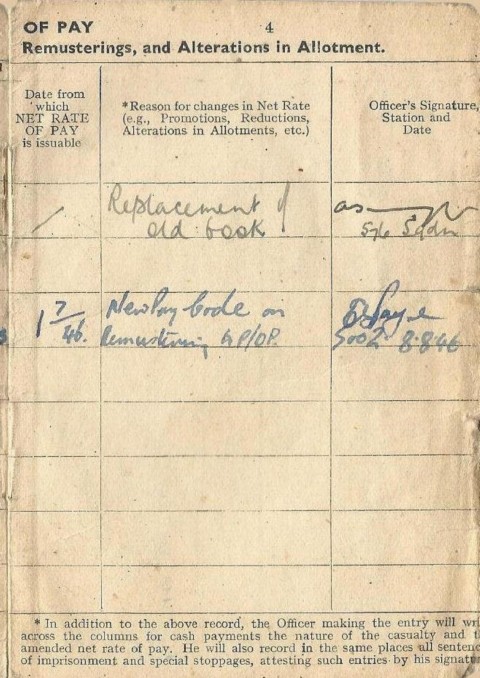 OF PAY 4
Remusterings, and Alterations in Allotment.
Date from
which
NET RATE
OF PAY
is issuable
*Reason for changes in Net Rate
(e.g., Promotions, Reductions,
Alterations in Allotments, etc.)
Officer's Signature,
Station and
Date
Replacement of
old book
Sqdn
1 7/46.
New Pay Code on
Remustering
8.8.46
* In addition to the above record, the Officer making the entry will wri
across the columns for cash payments the nature of the casualty and t
amended net rate of pay. He will also record in the same places all senten
of imprisonment and special stoppages, attesting such entries by his signatu